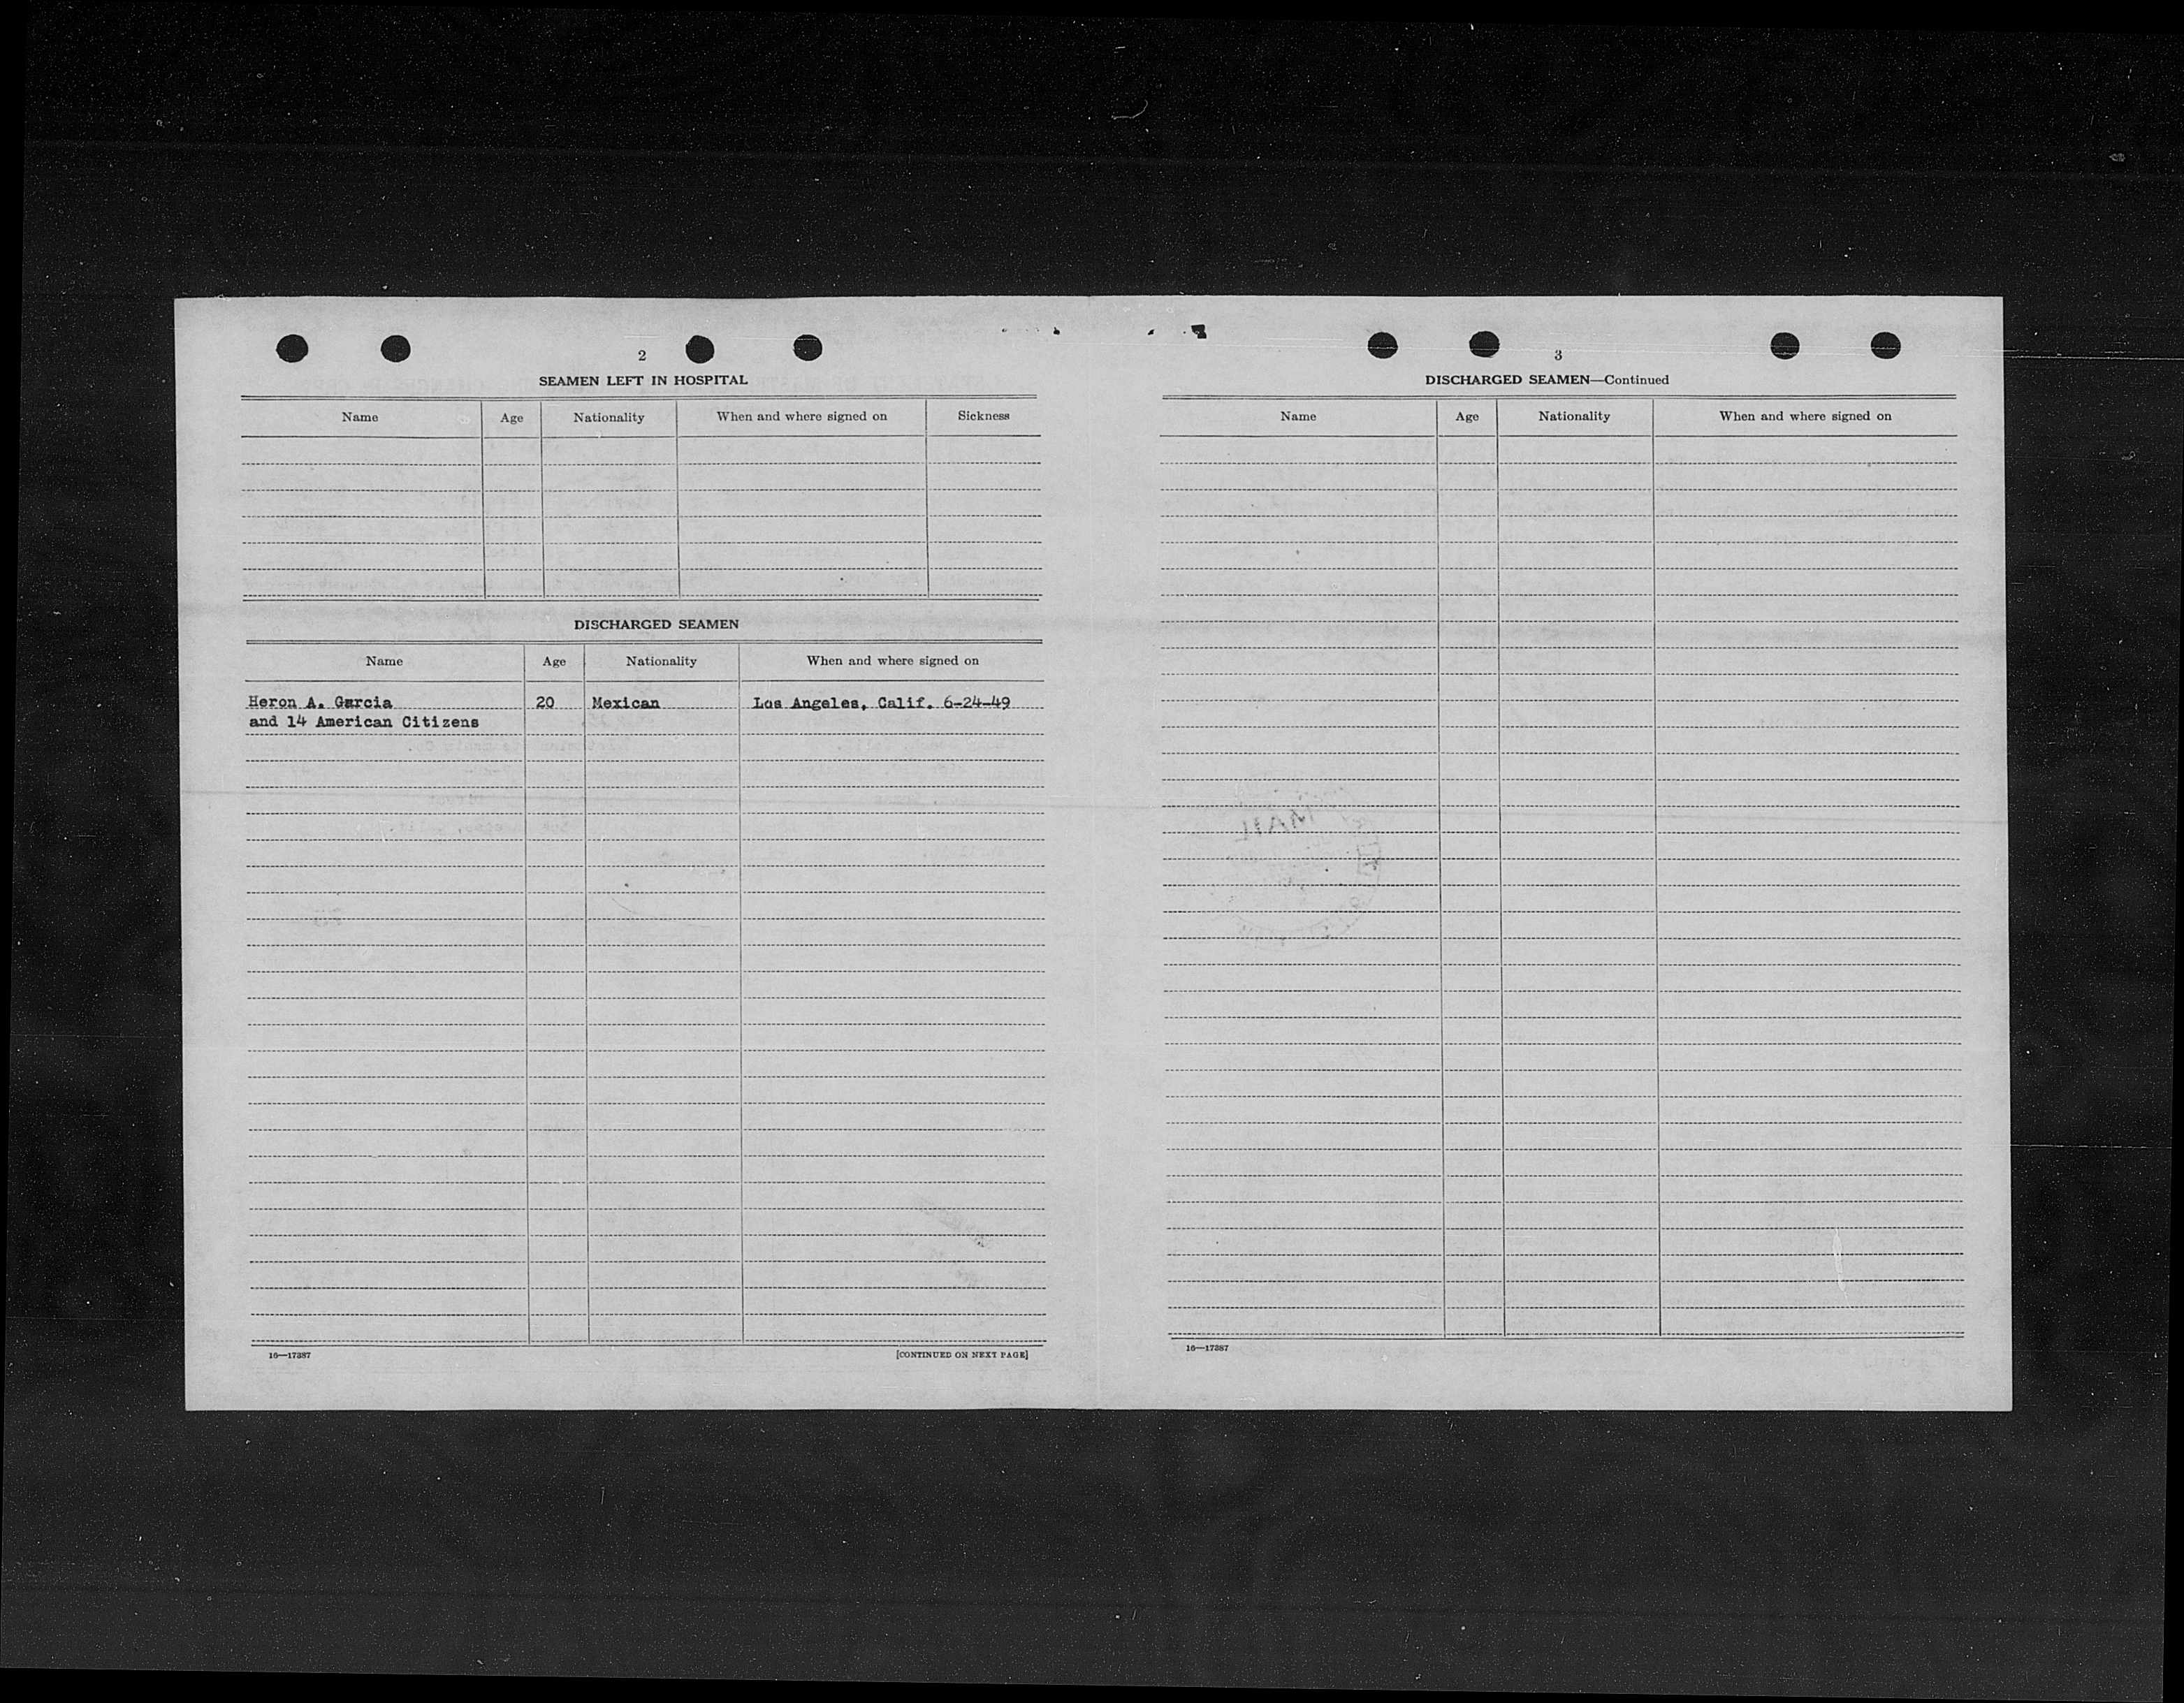 2
SEAMEN LEFT IN HOSPITAL
Name Age Nationality When and where signed on Sickness
DISCHARGED SEAMEN
Name Age Nationality When and where signed on
Heron A. Garcia 20 Mexican Los Angeles, Calif. 6-24-49
and 14 American Citizens
16—17387
[CONTINUED ON NEXT PAGE]
3
DISCHARGED SEAMEN—Continued
Name Age Nationality When and where signed on
MAIL
16—17387